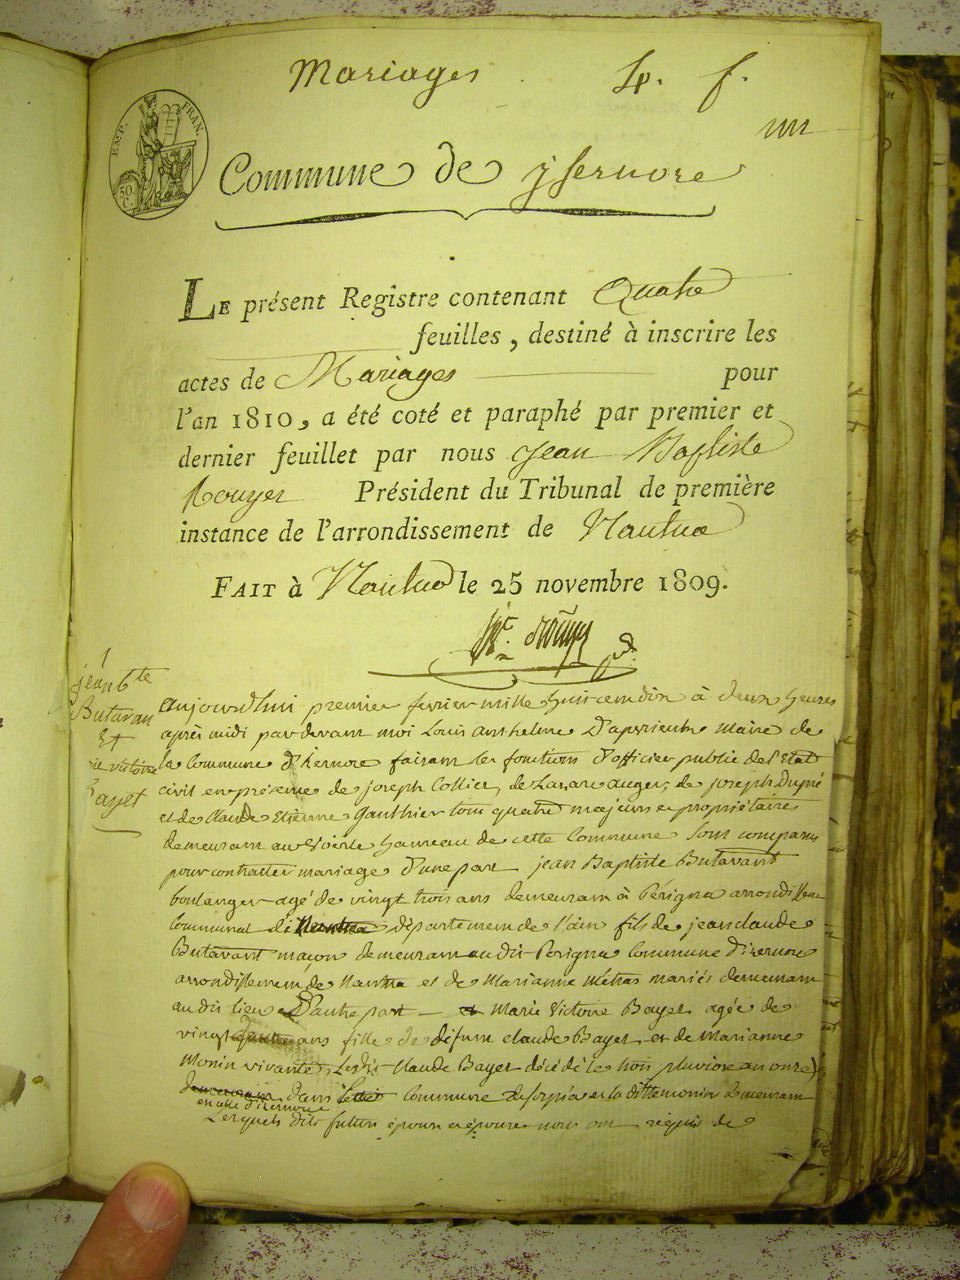 Mariages 4. f.
un
EMP. FRAN.
50 C.
Commune de ysernore
LE présent Registre contenant Quatre
feuilles, destiné à inscrire les
actes de Mariages pour
l'an 1810, a été coté et paraphé par premier et
dernier feuillet par nous Jean Baptiste
Rouyer Président du Tribunal de première
instance de l'arrondissement de Nantua
FAIT à Nantua le 25 novembre 1809.
1
jean bte
Butavan
Et
victoire
Bayet
aujourd'hui premier fevrier mille huit cent dix à deux heures
après midi pardevant moi Louis anthelme Maire de
la Commune d'isernore faisant les fonctions d'officier public de l'Etat
civil en présence de joseph Collier, de Lazare auger, de joseph Dupré
et de Claude Etienne Gauthier tous quatre majeurs et propriétaires
demeurant au hameau de cette Commune sont comparus
pour contracter mariage d'une part jean Baptiste Butavant
boulanger agé de vingt trois ans demeurant à Pérignat arrondissement
communal de Nantua département de l'ain fils de jean claude
Butavant maçon demeurant au dit Perignat Commune d'isernore
arrondissement de Nantua et de Marianne Métras mariés demeurant
au dit lieu D'autre part et Marie Victoire Bayet agée de
vingt ans fille de défunt claude Bayet et de Marianne
Monin vivante, Le dit Claude Bayet décédé le trois pluviose an onze
dans commune et la ditte monin demeurant
en celle d'isernore
Lesquels dits futurs époux et épouse nous ont requis de